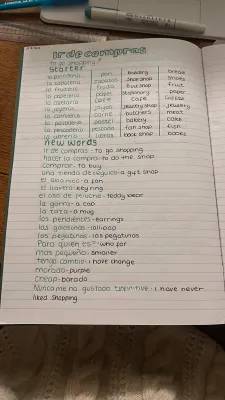 Ir de compras
to go shopping
Starter
la panadería pan bakery bread
la zapatería zapatos shoe shop shoes
la frutería fruta fruit shop fruit
la papelería papel stationery paper
la cafetería café cafe coffee
la joyería joyas jewellery shop jewellery
la carnicería carne butchers meat
la pastelería pastel bakery cake
la pescadería pescado fish shop fish
la librería libros book shop books
new words
ir de compras - to go shopping
hacer la compra - to do the shop
comprar - to buy
una tienda de regalos - a gift shop
el abanico - a fan
el llavero - key ring
el oso de peluche - teddy bear
la gorra - a cap
la taza - a mug
los pendientes - earrings
las golosinas - lollipop
las pegatinas - las pegatinas
Para quien es? - who for
mas pequeño - smaller
tengo cambio - i have change
morado - purple
cheap - barado
Nunca me ha gustado + infinitive - i have never
liked shopping